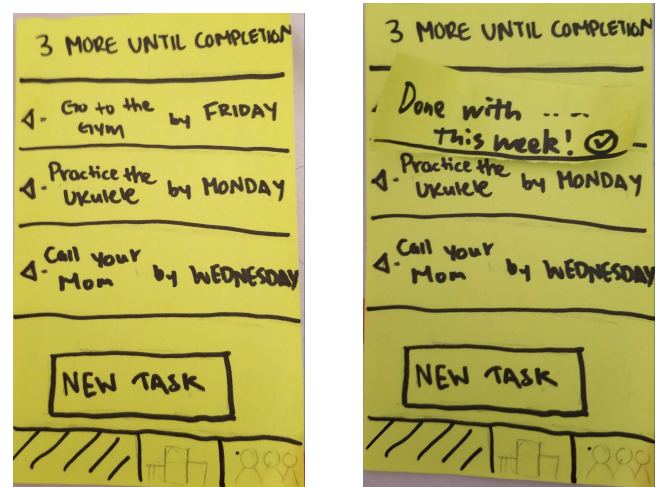 3 MORE UNTIL COMPLETION
Go to the
Gym by FRIDAY
Practice the
Ukulele by MONDAY
Call your
Mom by WEDNESDAY
NEW TASK
3 MORE UNTIL COMPLETION
Done with ....
this week!
Practice the
Ukulele by MONDAY
Call your
Mom by WEDNESDAY
NEW TASK